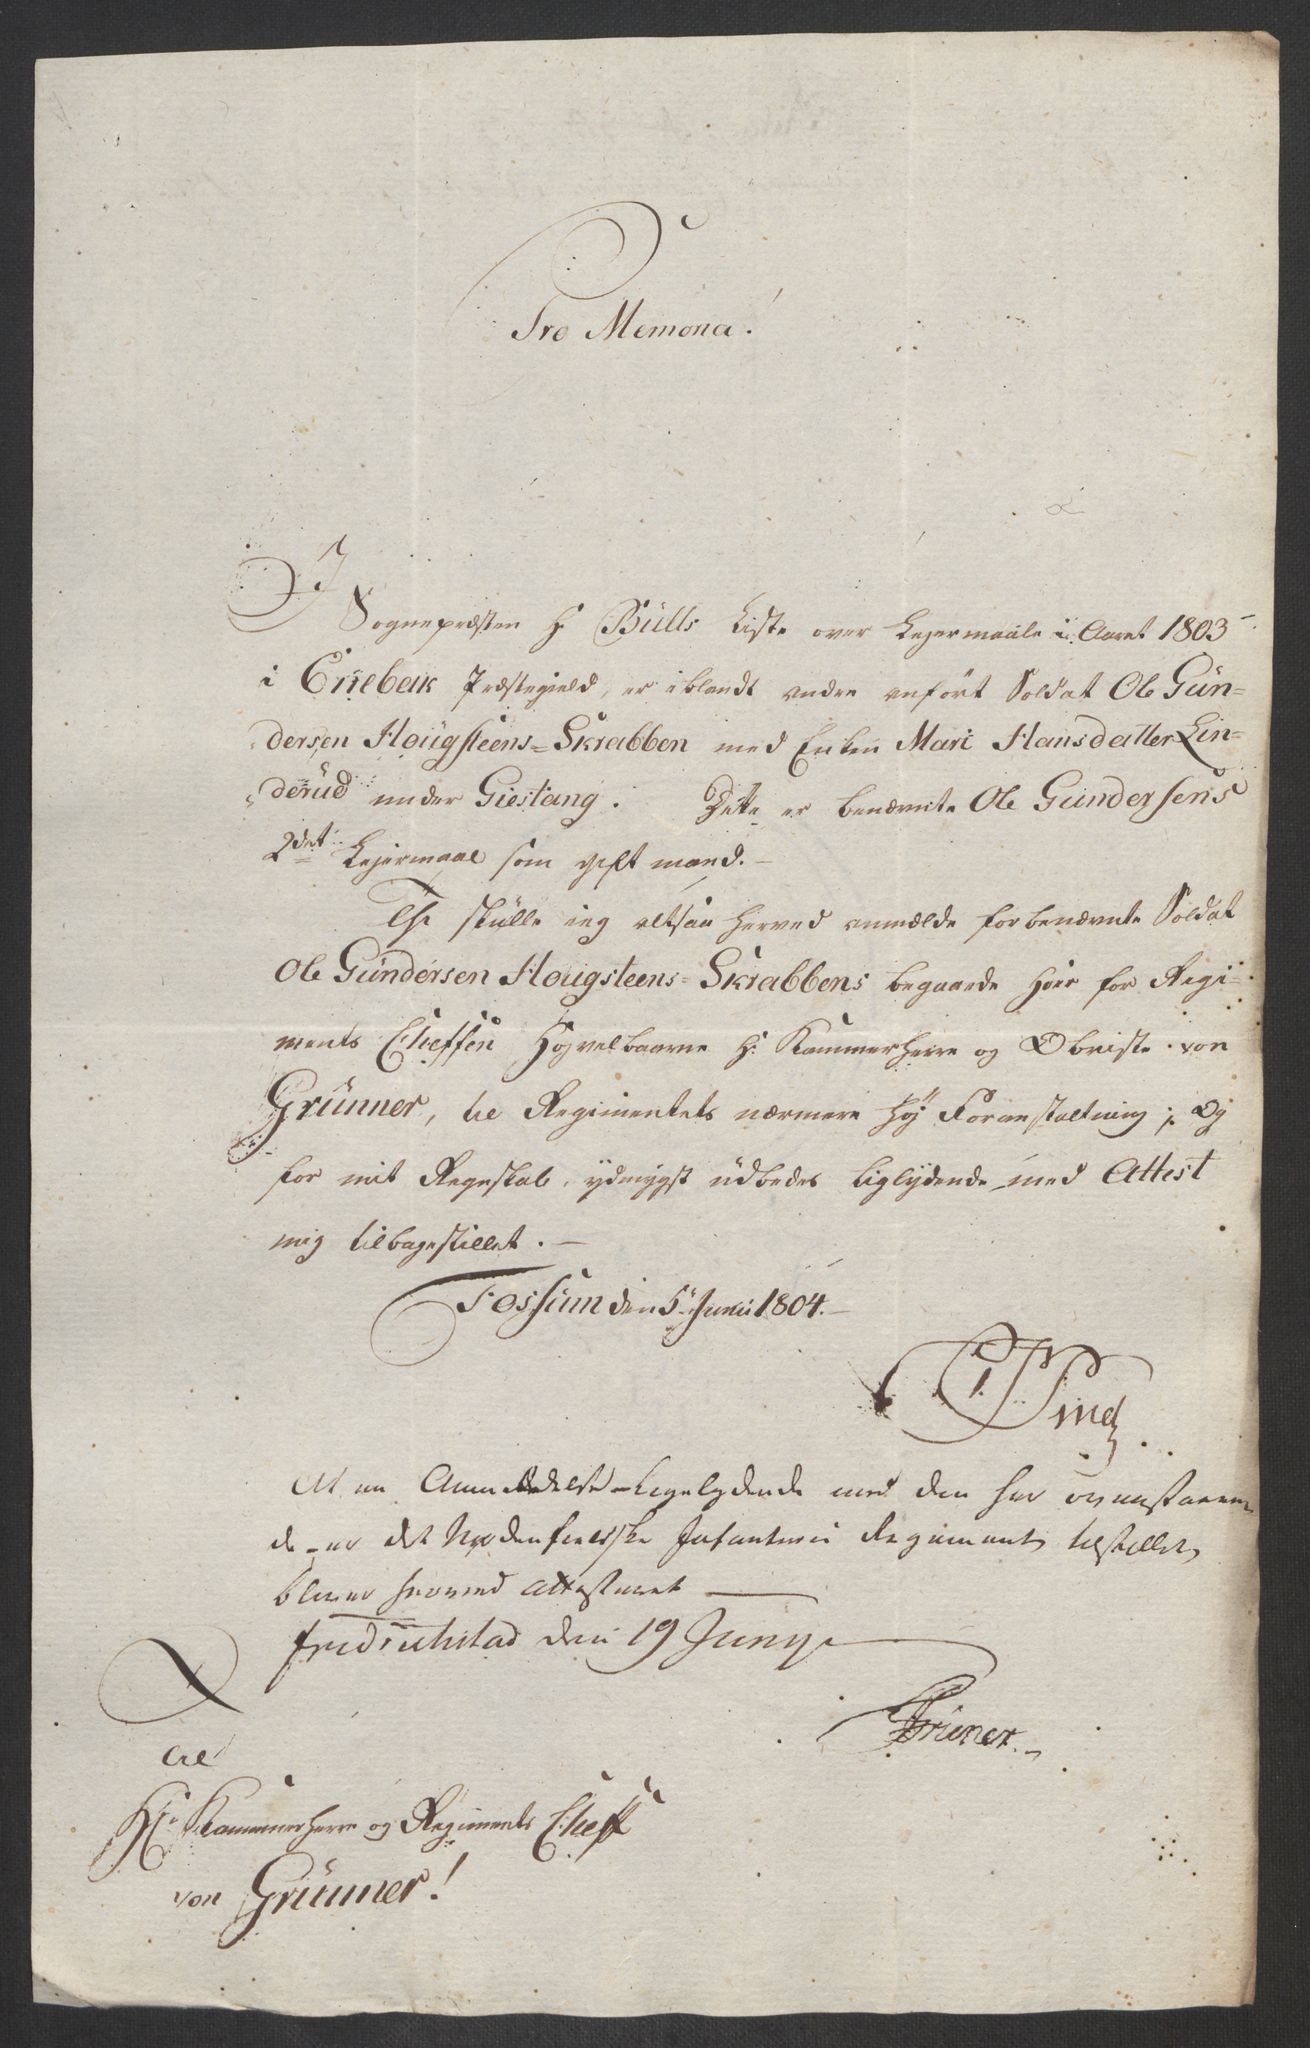 Pro Memoria!
I
Sognepræsten H. Bülls Liste over Lejermaale i Aaret 1803
i Ennebak Præstegield, er iblandt andre anført Soldat Ole Gün=
dersen Hougsteens=Skrabben med Enken Mari Hansdatter Lin=
derud under Giestang. Dette er benævnte Ole Gundersens
2det Lejermaal som gift mand.
Thi skulle jeg altsaa herved anmælde forbenævnte Soldat
Ole Gündersen Hougsteens=Skrabbens begaaede Hoer for Regi=
ments Cheffen Høyvelbaarne H: Kammerherre og Obriste von
Grünner, til Regimentets nærmere høj Foranstaltning; Og
for mit Regnskab, ydmygst udbedes liglydende med Attest
mig tilbagestillet.
Fossum den 5te Junii 1804.
At en Anmeldelse ligelydende med den her ovenstaaen
de er det Nordenfieldske Infanterie Regiment tilstillet,
bliver herved attesteret
Fredrichstad den 19 Juny
Grüner
Til
Hr. Kammerherre og Regiments Cheff
von Grünner!